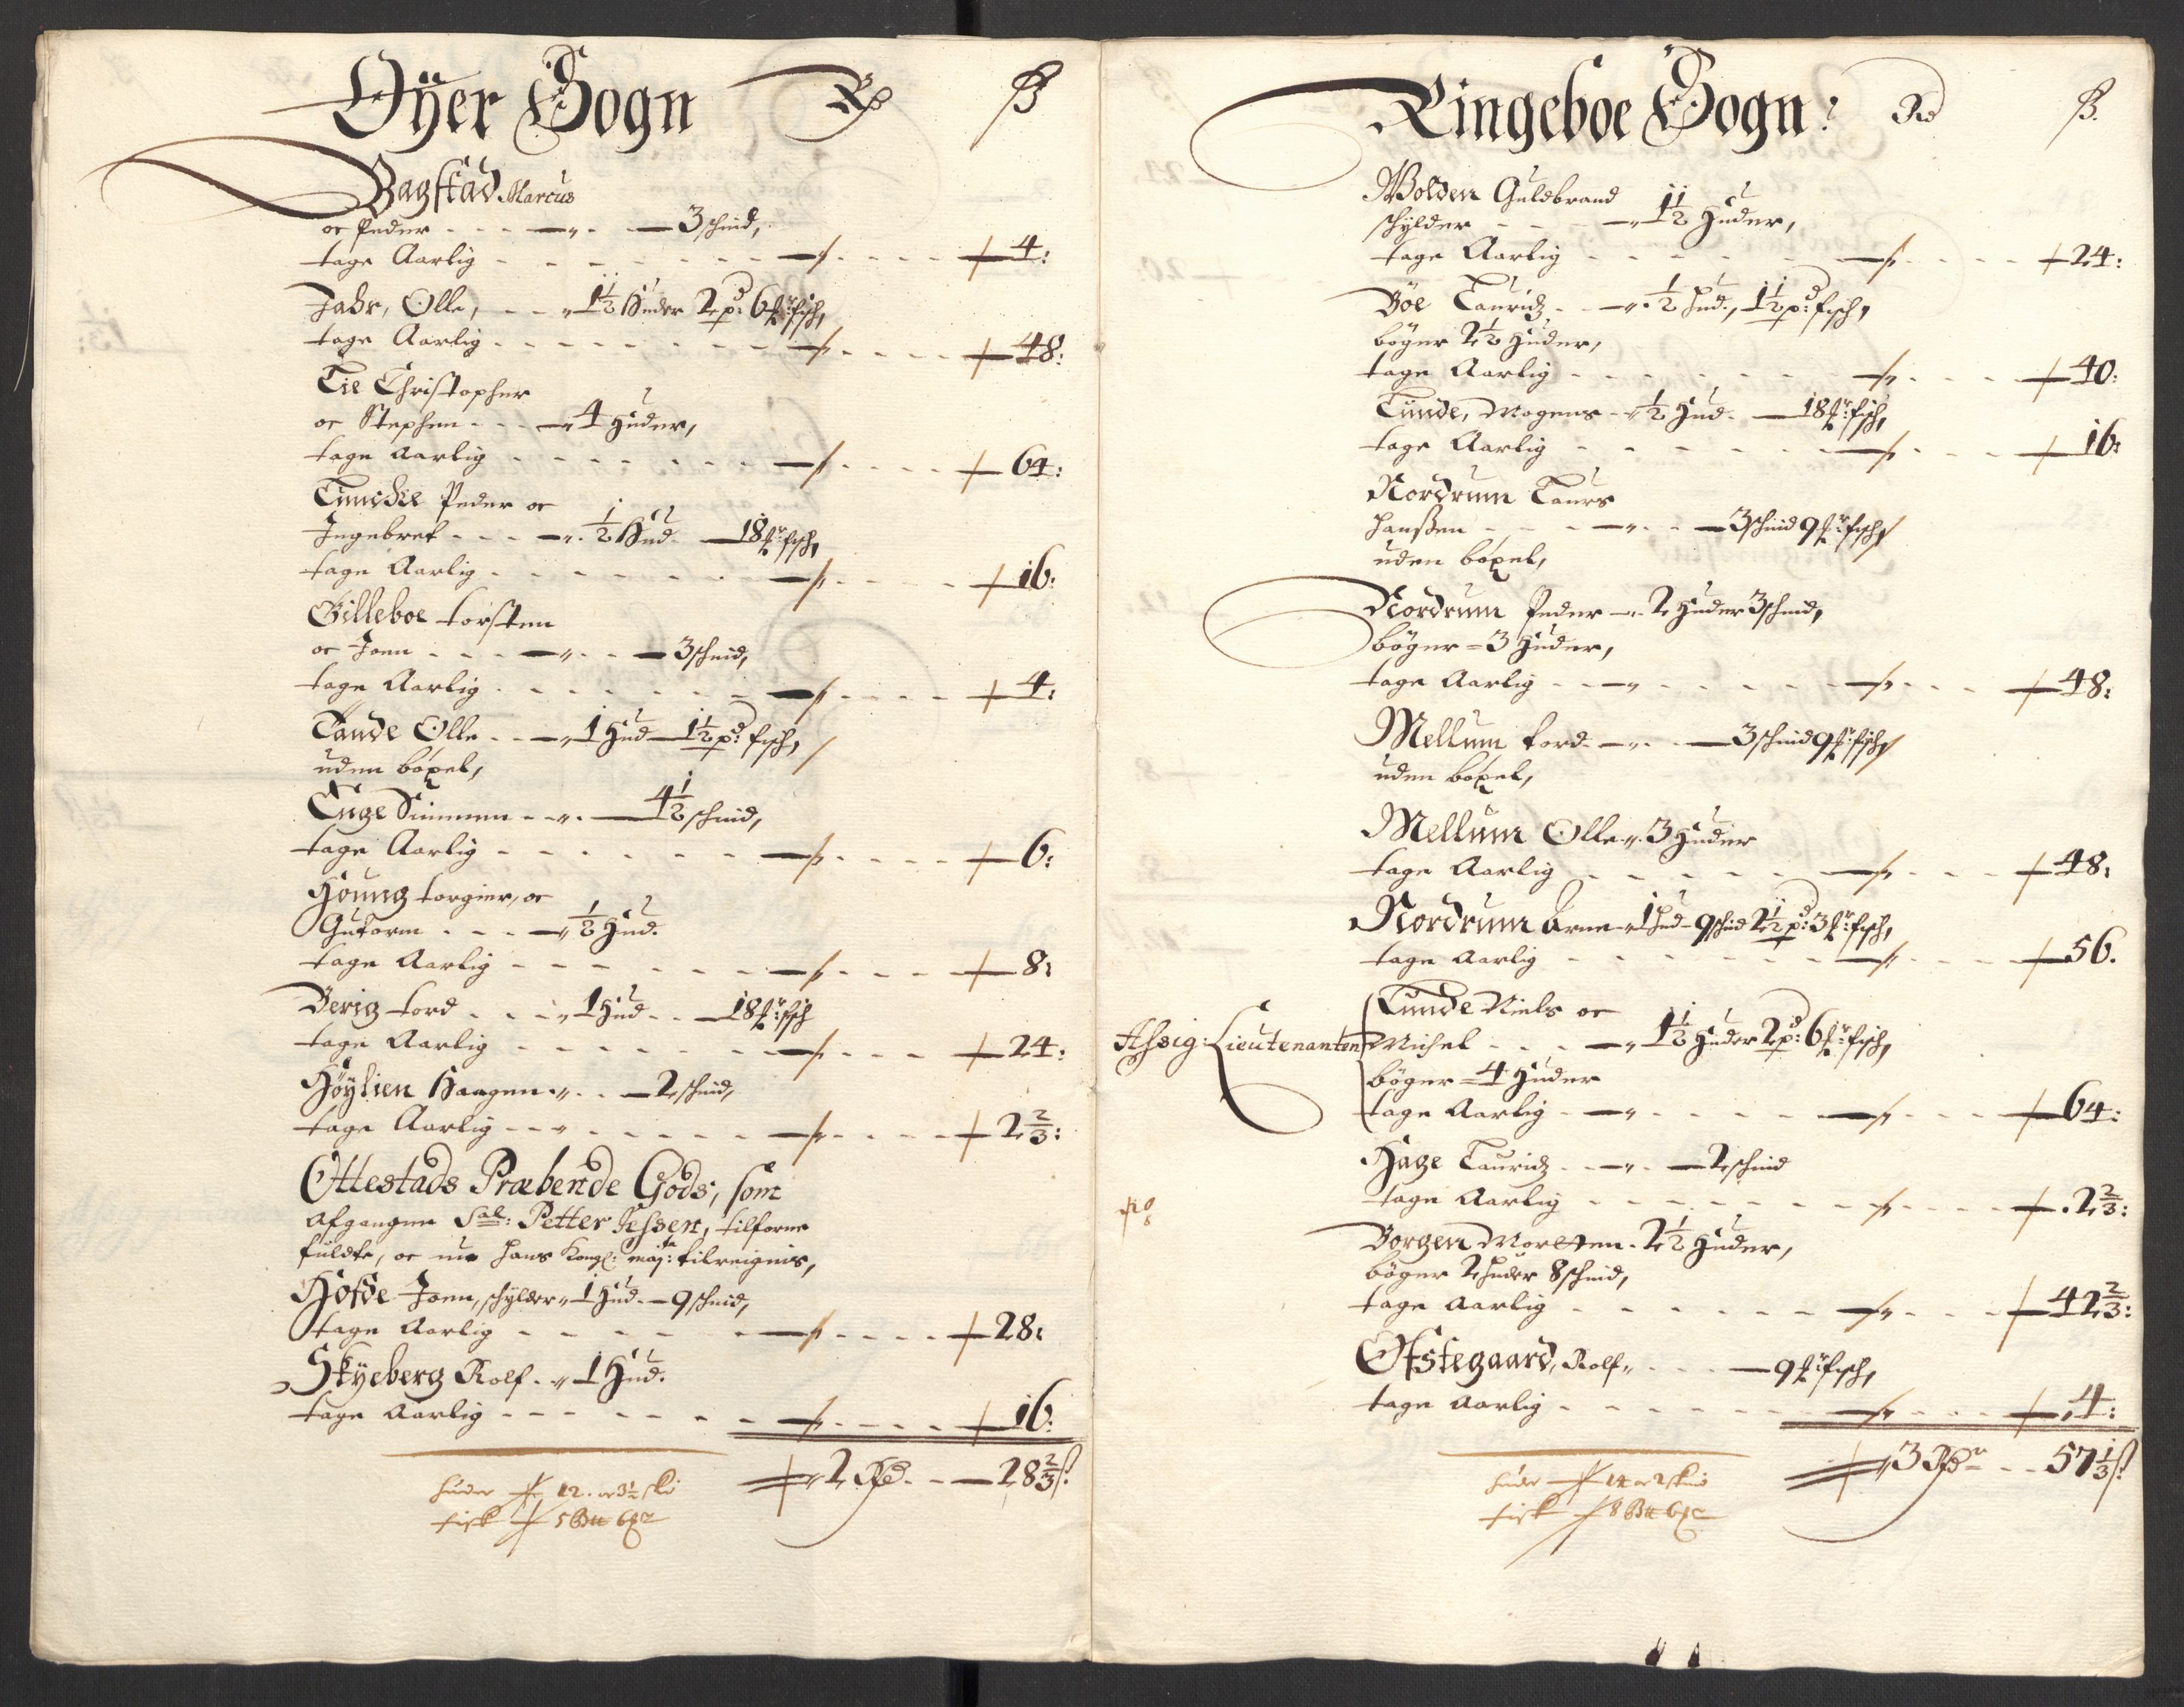 Öÿer Sogn Rd ß
Bagstad Marcus
oc Peder - - - — „ - — 3 schind,
tage Aarlig - - - - - — 4:
Jahr, Olle, - - „ 1½ Huder 2 pd: 6 mr: fisch,
tage Aarlig - - - - - — 48:
Lie Christopher
oc Stephen - - - „ 4 Huder,
tage Aarlig - - - - - — 64:
Lunche Peder oc
Ingebret - - - — „ ½ Hud — 18 mr: fisch,
tage Aarlig - - - - - — 16:
Gilleboe torsten
oc Joen - - - — „ - — 3 schind,
tage Aarlig - - - - - — 4:
Lande Olle - - — „ 1 Hud — 1½ pd: fisch,
uden böxel,
Enge Simmen - - „ - — 4½ schind,
tage Aarlig - - - - - — 6:
Houng torgier, oc
Gutorm - - - — „ ½ Hud.
tage Aarlig - - - - - — 8:
Berig tord - - - „ 1 Hud - - — 18 mr: fisch
tage Aarlig - - - - - — 24:
Höÿlien Haagen - „ - - — 2 schind,
tage Aarlig - - - - - — 2⅔:
Ottestads Præbende Gods, som
afgangne Sal: Petter Jessen, tilforne
fulte, oc nu hans Kongl: maj:ts tilreignis,
Hofde Joen, schÿlder „ 1 Hud - — 9 schind,
tage Aarlig - - - - - — 28:
Skÿeberg Rolf - „ 1 Hud.
tage Aarlig - - - - - — 16:
„ 2 Rd - - — 28⅔ ß
huder 12 - 3½ ski
fisk 5 6
Ringeboe Sogn: Rd ß.
Wolden Guldbrand
schÿlder - - - „ 1½ Huder,
tage Aarlig - - - - - — 24:
Böe Lauridz - - — „ ½ hud, 1½ pd: fisch,
böger 2½ Huder,
tage Aarlig - - - - - — 40:
Tunde, Mogens - „ ½ Hud - — 18 mr: fisch,
tage Aarlig - - - - - — 16:
Nordrum Laurs
Hanßen - - - — „ - - — 3 schind 9 mr: fisch,
uden böxel,
Nordrum Peder — „ 2 Huder 3 schind,
böger = 3 Huder,
tage Aarlig - - - - - — 48:
Mellum tord - — „ - — 3 schind 9 mr: fisch,
uden böxel,
Mellum Olle „ 3 Huder
tage Aarlig - - - - - — 48:
Nordrum Arne „ 1 hud - 9 schind 2½ pd: 3 mr: fisch,
tage Aarlig - - - - - — 56.
Tunde Niels oc
Assig: Lieutenanten Michel - - - — „ 1½ Huder 2 pd: 6 mr: fisch,
böger = 4 Huder
tage Aarlig - - - - - — 64:
Hage Lauridz - - — „ - — 2 schind
tage Aarlig - - - - - — 2⅔:
Borgen Morten - 2½ Huder,
böger 2 huder 8 schind,
tage Aarlig - - - - - — 42⅔:
Ofstegaard, Rolf „ - - - — 9 mr: fisch,
tage Aarlig - - - - - — 4:
„ 3 Rdr - - 57⅓ ß
huder 14 - 2 skind
fisk 8 6